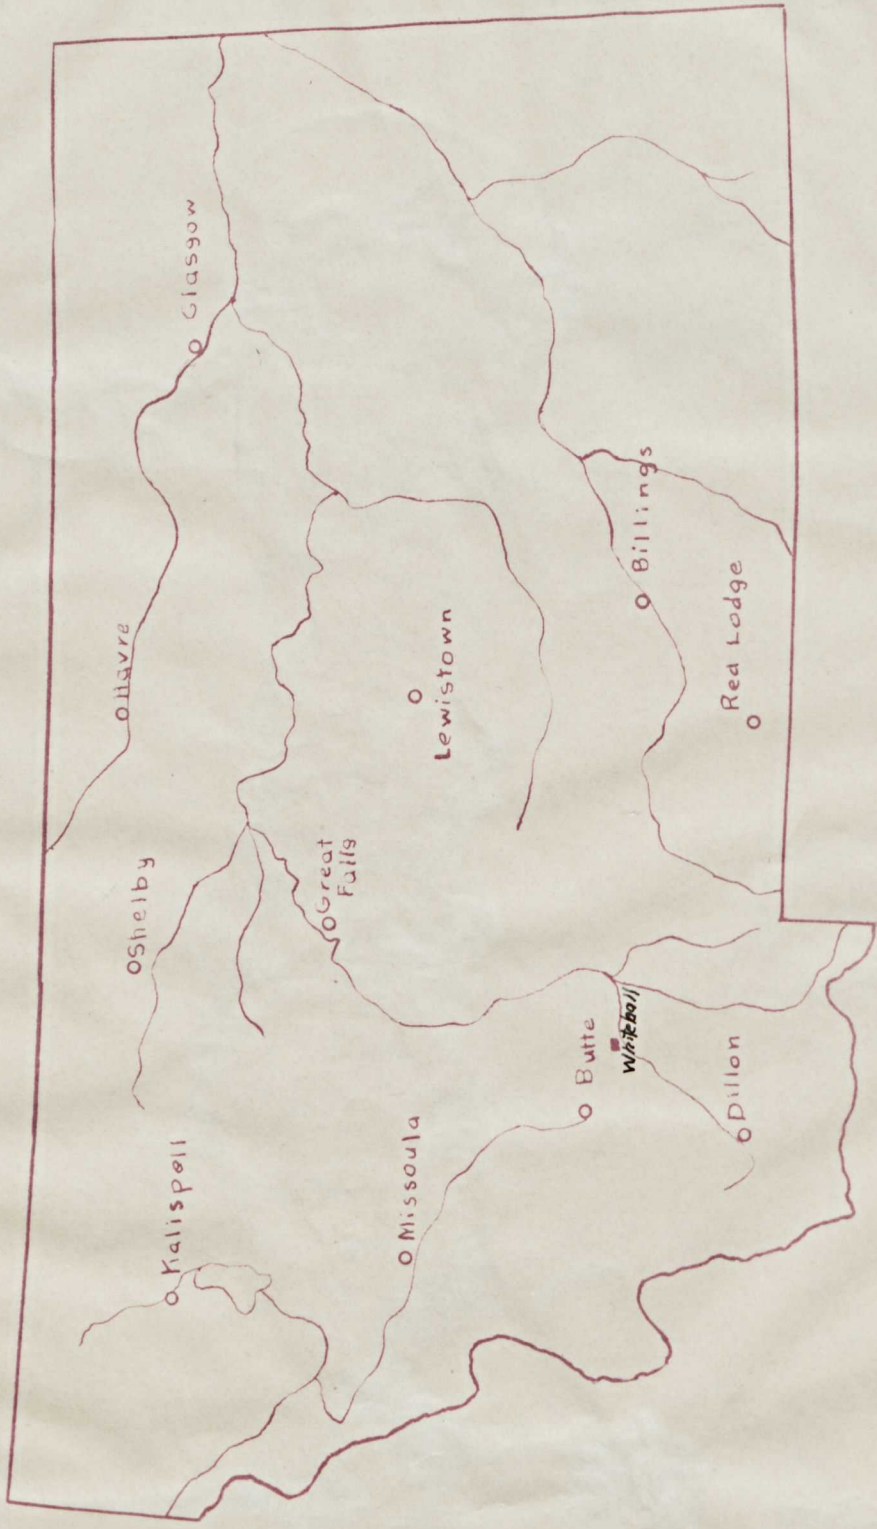 Kalispell
Shelby
Havre
Glasgow
Great
Falls
Missoula
Lewistown
Butte
Whitehall
Billings
Dillon
Red Lodge